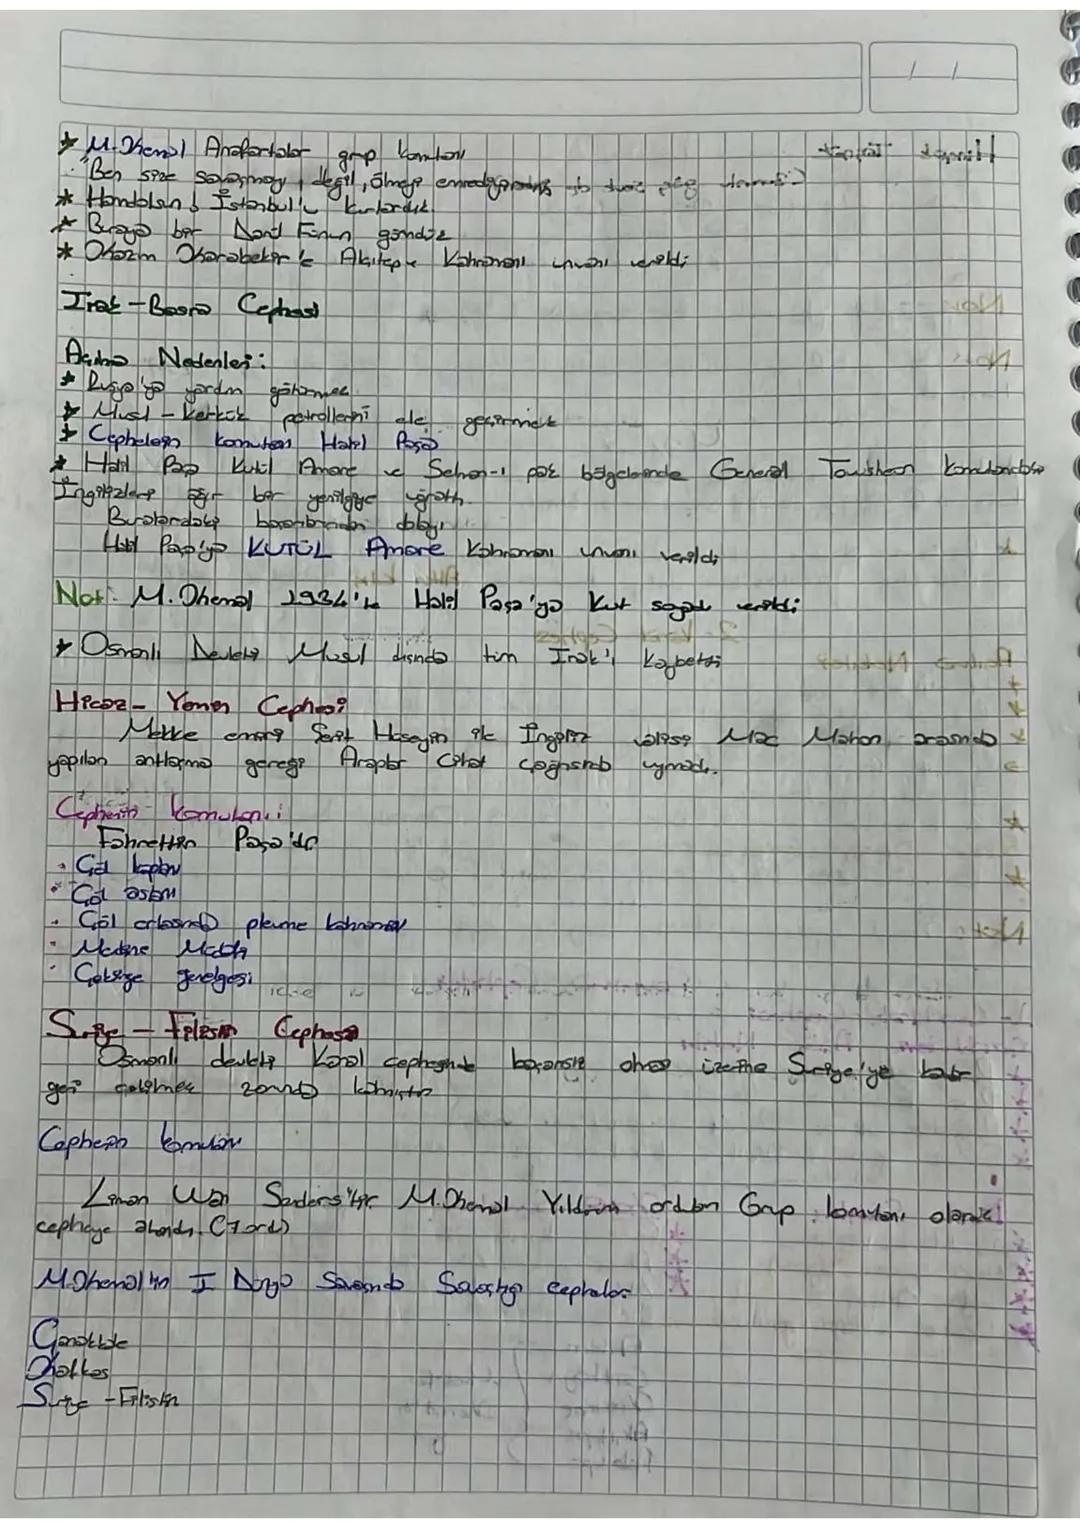 * M. Khemal Anafartalar grup komutanı
"Ben size savaşmayı değil, ölmeyi emrediyorum
* Çanakkale İstanbul'u kurtardık.
* Buraya bir Nord Finun gömdük
* Khazım Kharabekir'e Alçıtepe Kahramanı unvanı verildi
Irak - Basra Cephesi
Açılma Nedenleri:
* Rusya'ya yardım götürmek
* Musul - Kerkük petrollerini ele geçirmek
* Cephelerin komutanı Halil Paşa
* Halil Paşa Kutül Amare ve Selman-ı pak bölgelerinde General Towshean komutanlığında
İngilizlere ağır bir yenilgiye uğrattı.
Buralardaki başarılarından dolayı
Halil Paşa'ya KUTÜL Amare Kahramanı unvanı verildi
Not: M. Khemal 1934'te Halil Paşa'ya Kut soyadı verildi
* Osmanlı Devleti Musul dışında tüm Irak'ı kaybetti
Hicaz - Yemen Cephesi
Mekke emiri Şerif Hüseyin ile İngiliz valisi Mac Mahon arasında
yapılan antlaşma gereği Araplar Cihat çağrısına uymadı.
Cephenin komutanı:
Fahrettin Paşa'dır
• Çöl kaplanı
• Çöl aslanı
• Çöl ortasında plevne kahramanı
• Medine Müdafi
• Çekirge genelgesi
Suriye - Filistin Cephesi
Osmanlı devleti Kanal cephesinde başarısız olması üzerine Suriye'ye kadar
geri çekilmek zorunda kalmıştır
Cephenin komutanı
Liman Van Sanders'tir M. Khemal Yıldırım orduları Grup komutanı olarak
cepheye atandı. (7. ordu)
M. Khemal'in I Dünya Savaşında Savaştığı cepheler
Çanakkale
Khafkas
Suriye - Filistin